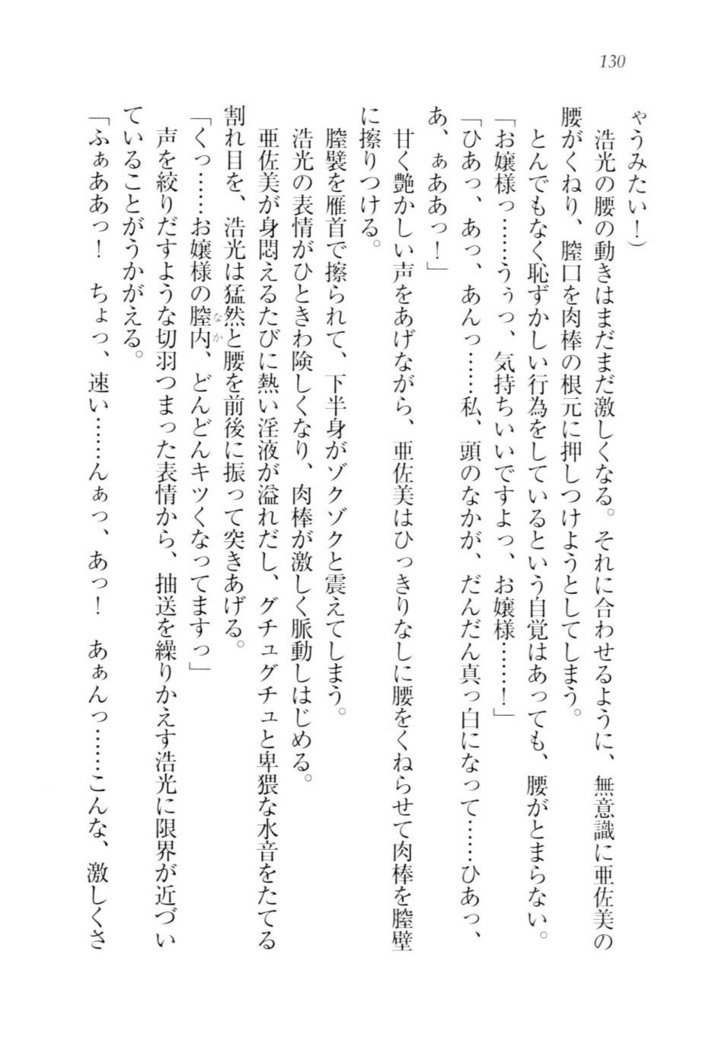 130
ゃうみたい！）
　浩光の腰の動きはまだまだ激しくなる。それに合わせるように、無意識に亜佐美の
腰がくねり、膣口を肉棒の根元に押しつけようとしてしまう。
　とんでもなく恥ずかしい行為をしているという自覚はあっても、腰がとまらない。
「お嬢様っ……うぅっ、気持ちいいですよっ、お嬢様……！」
「ひあっ、あっ、あんっ……私、頭のなかが、だんだん真っ白になって……ひあっ、
あ、ぁああっ！」
　甘く艶かしい声をあげながら、亜佐美はひっきりなしに腰をくねらせて肉棒を膣壁
に擦りつける。
　膣襞を雁首で擦られて、下半身がゾクゾクと震えてしまう。
　浩光の表情がひときわ険しくなり、肉棒が激しく脈動しはじめる。
　亜佐美が身悶えるたびに熱い淫液が溢れだし、グチュグチュと卑猥な水音をたてる
割れ目を、浩光は猛然と腰を前後に振って突きあげる。
「くっ……お嬢様の膣内、どんどんキツくなってますっ」
なか
　声を絞りだすような切羽つまった表情から、抽送を繰りかえす浩光に限界が近づい
ていることがうかがえる。
「ふぁああっ！　ちょっ、速い……んぁっ、あっ！　あぁんっ……こんな、激しくさ